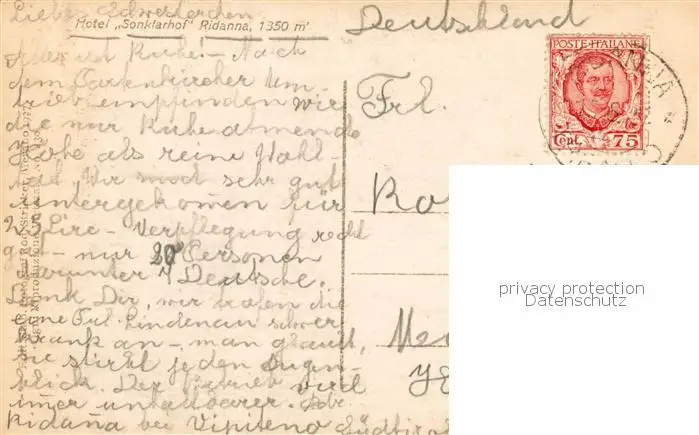 Liebes Schwesterchen.
Hotel „Sonklarhof" Ridanna, 1350 m
Deutschland
Hier ist Ruhe! – Nach
dem Partenkircher Um-
trieb empfinden wir
die nur Ruhe atmende
als reine Wohl-
tat. Wir sind sehr gut
untergekommen für
25 Lire – Verpflegung recht
gut – nur 20 Personen
darunter 4 Deutsche.
Denk Dir, wir trafen die
eine Frl. Lindenau schwer
krank an – man glaubt,
sie stirbt jeden Augen-
blick. Der Betrieb wird
immer unhaltbarer.
Ridaña bei Vipiteno Südtirol
Frl.
POSTE ITALIANE
Cent. 75
privacy protection
Datenschutz